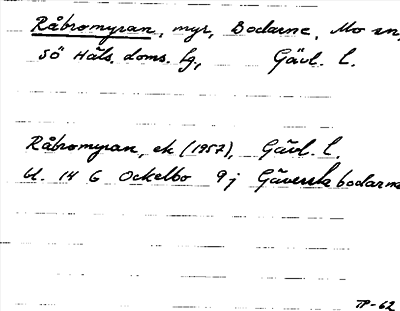 Råbromyran, myr, Bodarne, Mo sn,
SÖ Häls. doms. lg, Gävl. l.
Råbromyran, ek (1957), Gävl. l.
bl. 14 G Ockelbo 9j Gäverskabodarna
TP-62